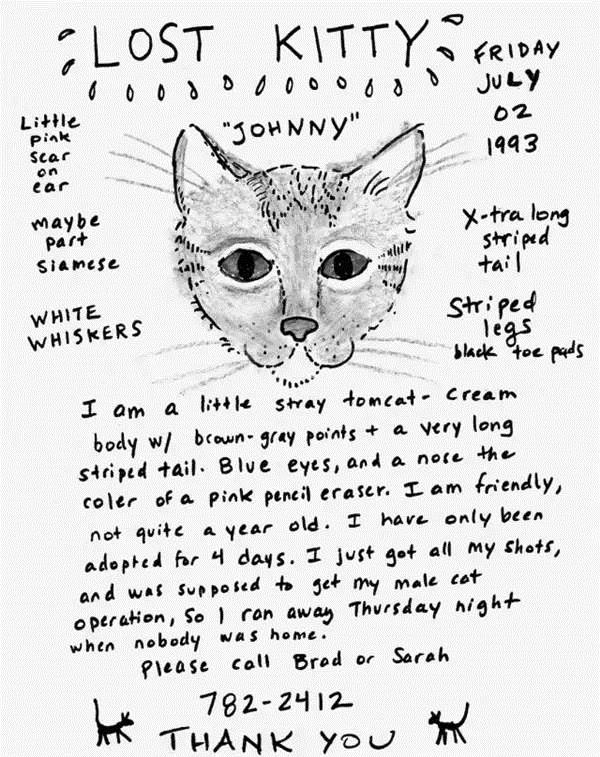 LOST KITTY
FRIDAY
JULY
02
1993
Little
pink
scar
on
ear
"JOHNNY"
maybe
part
Siamese
X-tra long
striped
tail
WHITE
WHISKERS
Striped
legs
black toe pads
I am a little stray tomcat - cream
body w/ brown-gray points + a very long
striped tail. Blue eyes, and a nose the
coler of a pink pencil eraser. I am friendly,
not quite a year old. I have only been
adopted for 4 days. I just got all my shots,
and was supposed to get my male cat
operation, so I ran away Thursday night
when nobody was home.
Please call Brad or Sarah
782-2412
THANK YOU